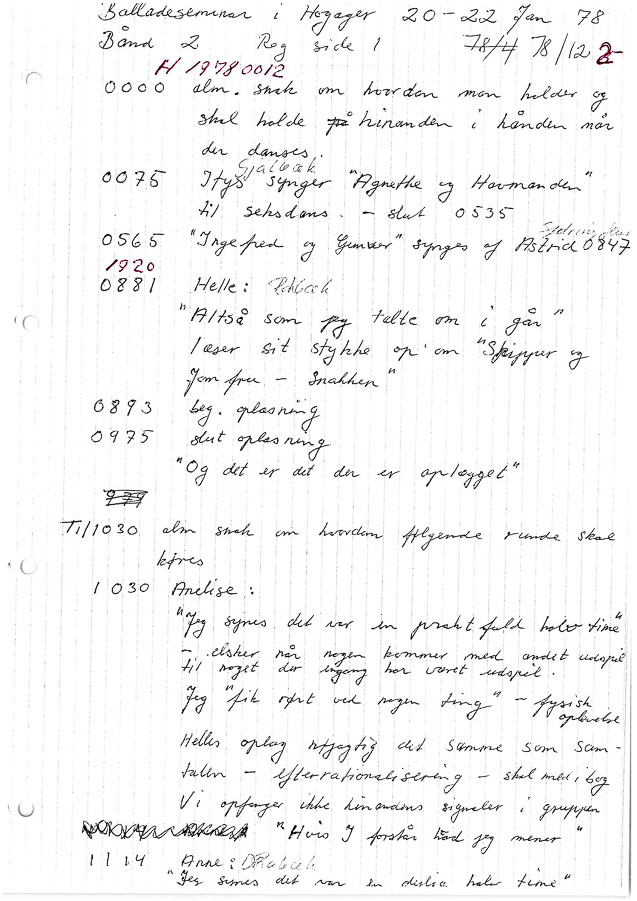 Balladeseminar i Hogager 20-22 Jan 78
Bånd 2 Reg side 1 78/4 78/12 2
H 19780012
0000 alm. snak om hvordan man holder og
skal holde på hinanden i hånden når
der danses.
Gjalbæk
0075 Itys synger "Agnethe og Havmanden"
til seksdans. - slut 0535
0565 "Ingefred og Gunver" synges af Astrid 0847
1920
0881 Helle:
"Altså som jeg talte om i går"
læser sit stykke op om "Skipper og
Jomfru - Snakken"
0893 beg. oplæsning
0975 slut oplæsning
"Og det er det der er oplægget"
979
Til/1030 alm snak om hvordan følgende runde skal
køres
1030 Anelise:
"Jeg synes det var en pragtfuld halv time"
- elsker når nogen kommer med andet udspil
til noget der engang har været udspil.
Jeg "fik rørt ved nogen ting" - fysisk
oplevelse
Helles oplæg nøjagtig det samme som sam-
talen - efterrationalisering - skal med i bog
Vi opfanger ikke hinandens signaler i gruppen
"Hvis I forstår hvad jeg mener"
1114 Anne:
"Jeg synes det var en halv time"